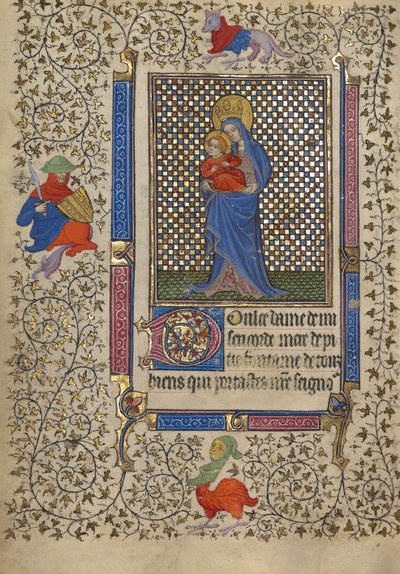 Doulce dame de mi
sericorde mere de pi
tie fontaine de touz
biens qui portastes nr̃e seigno²